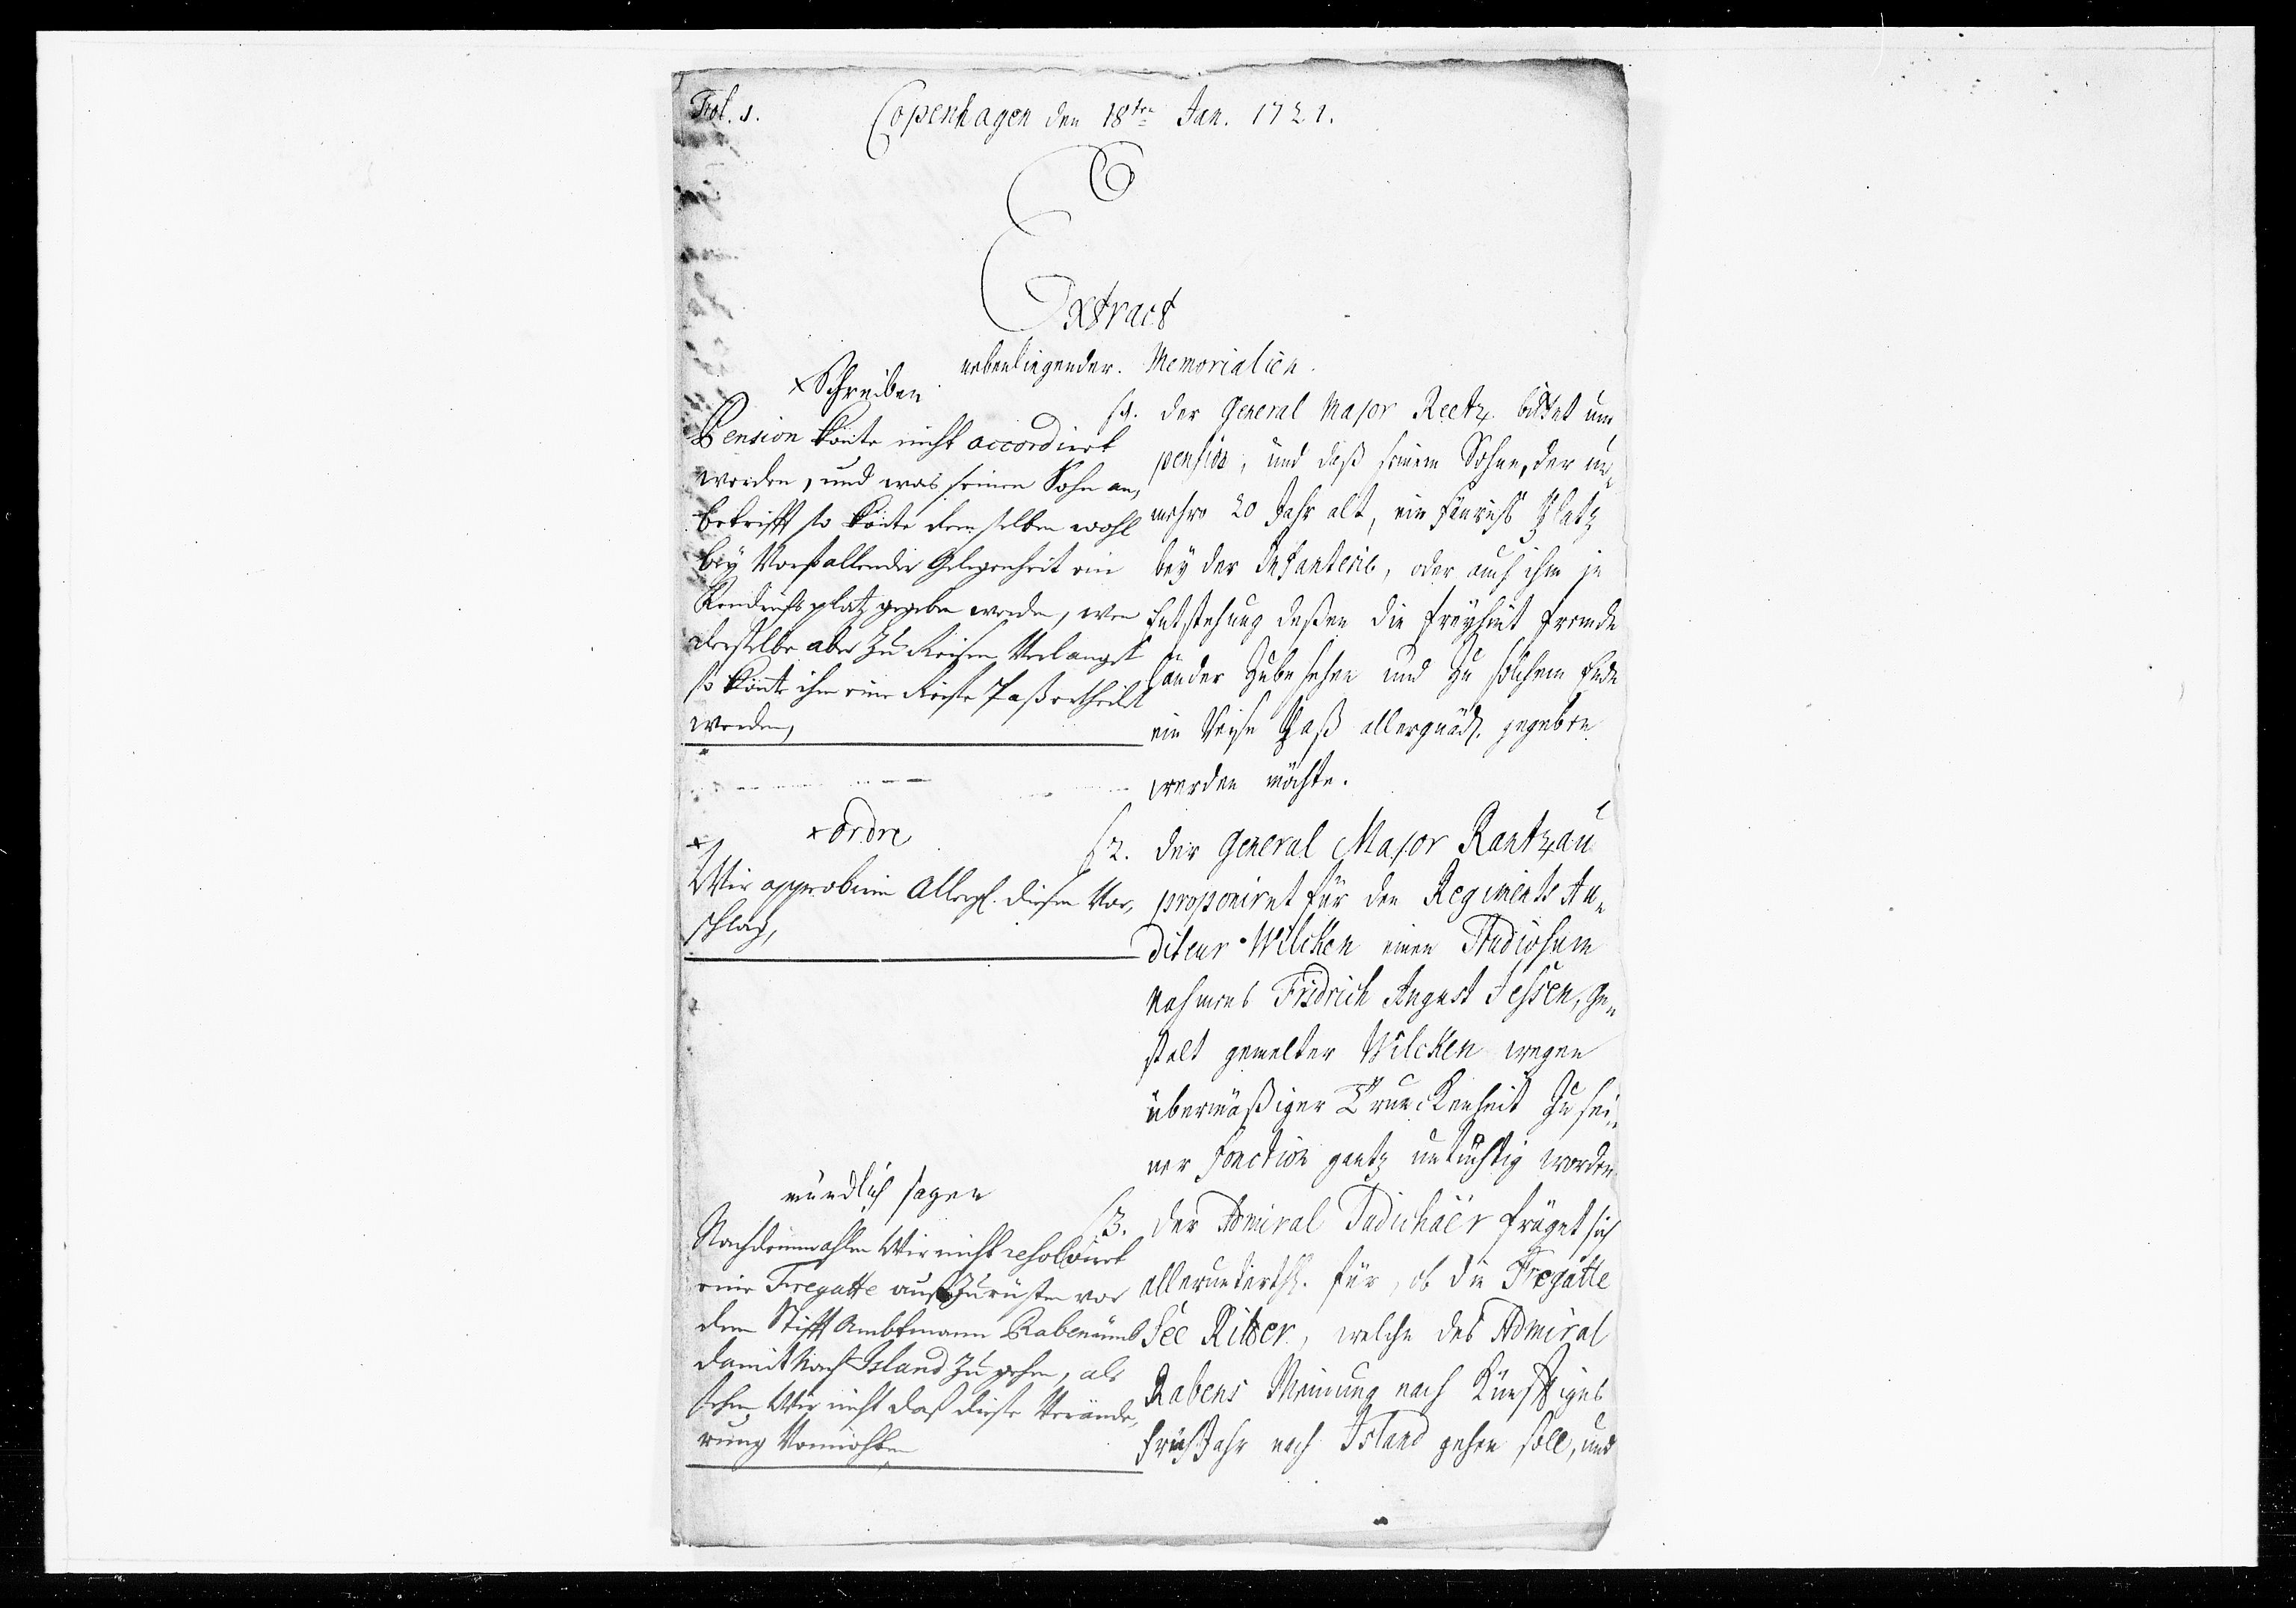 Fol. 1.
Copenhagen den 18ten Jan. 1721.
Extract
nebenliegender. Memorialien.
x Schreiben
Pension könte nicht accordiert
werden, und was seinen Sohn an,
betrifft so könte demselben wohl
bey Vorfallender Gelegenheit ein
platz gegeben werden, wen
derselbe aber zu Reisen Verlanget
so könte ihm eine Reise Paß ertheilt
werden,
§1. der General Major Reetz bittet um
pension, und daß seinem Sohne, der nu,
mehro 20 Jahr alt, ein Fänrichs Platz
bey der Infanterie, oder auch ihm in
Entstehung deßen die Freyheit fremde
länder zubesehen und zu solchem Ende
ein Reise Paß allergnädl. gegeben
werden möchte.
x ordre
x
Wir approbiren Allergl. diesen Vor,
schlag,
§2. der General Major Rantzau
proponiret für den Regiments Au,
diteur Wilcken einen Studiosum
Nahmens Fridrich August Jessen, ge,
stalt gemelter Wilcken wegen
übermäßiger Trunckenheit zu sei,
ner Fonction gantz untüchtig worden
mündlich sagen
Nachdemmahlen Wir nicht resolviert
eine Fregatte auszurüsten vor
dem Stifft Ambtmann Raben umb
damit Nach Island zu gehen, als
sehen Wir nicht daß diese Verände,
rung Vonnöhten
§3. Der Admiral Judichaër fräget sich
allerunterth. für, ob die Fregatte
See Ritter, welche des Admiral
Rabens Meinung nach Künfftiges
früh Jahr nach Island gehen soll, und